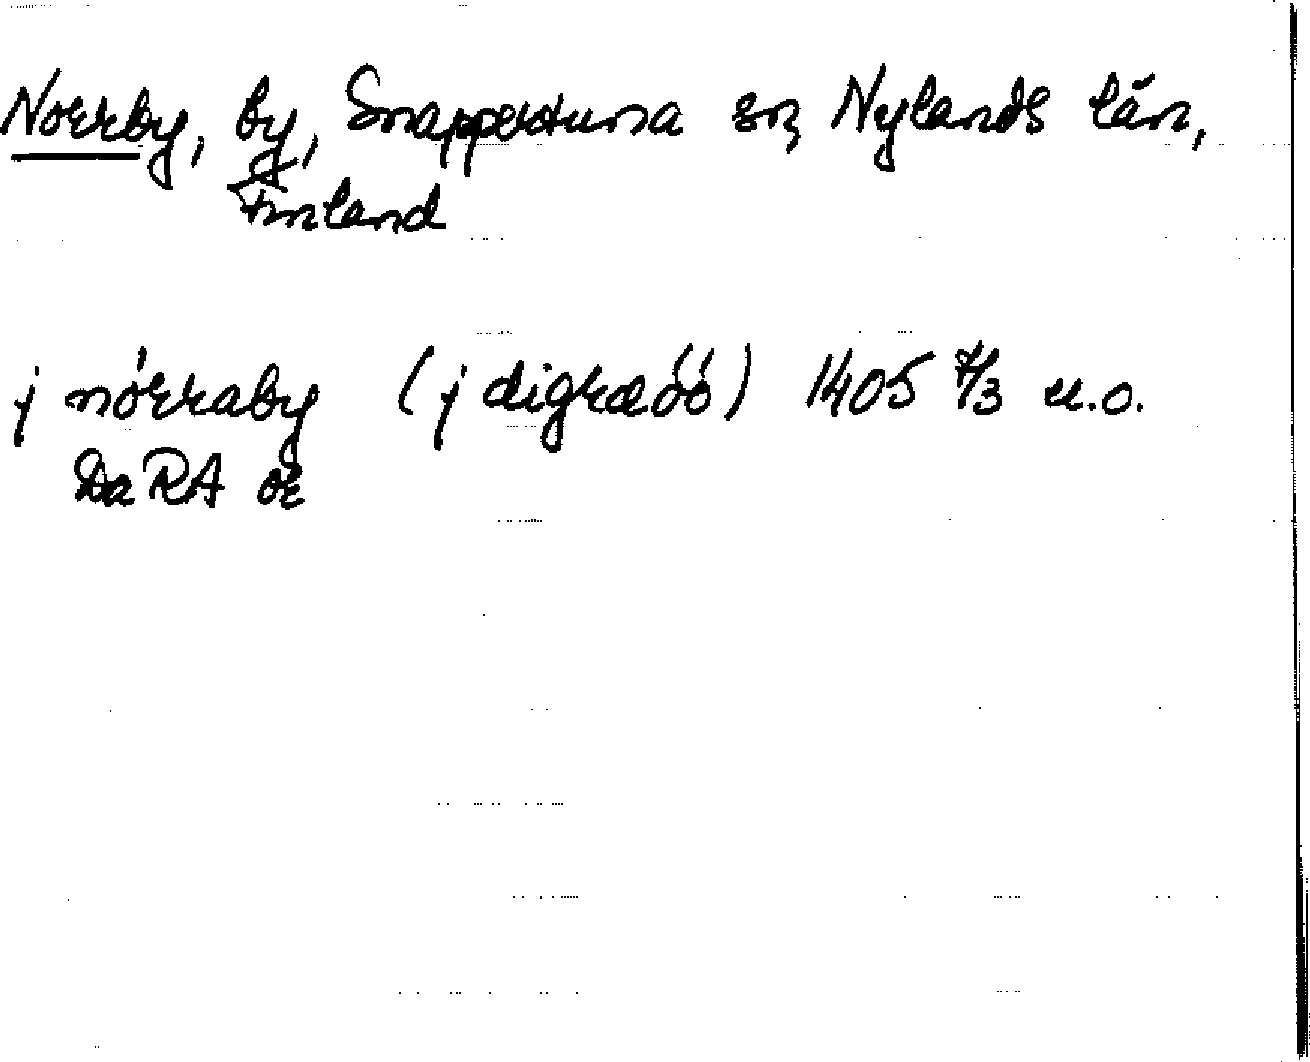 Norrby, by, Snappertuna sn, Nylands län,
Finland
j nórraby (j digræóó) 1405 7/3 u.o.
DaRA or